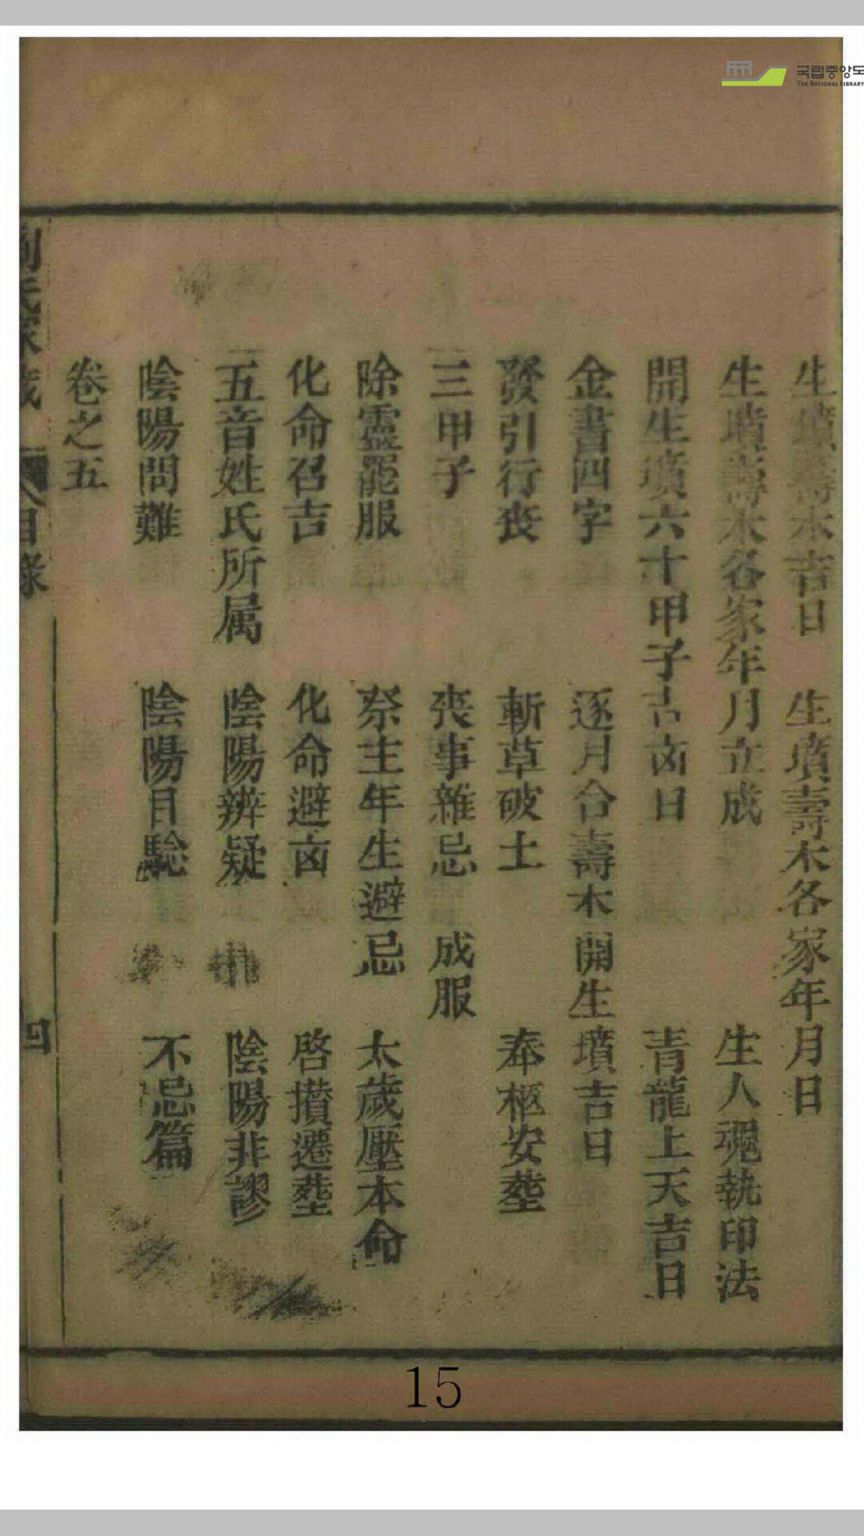 국립중앙도
THE NATIONAL LIBRARY
生墳壽木吉日 生墳壽木各家年月日
生墳壽木各家年月立成 生人魂執印法
開生墳六十甲子吉凶日 青龍上天吉日
金書四字 逐月合壽木開生墳吉日
發引行丧 斬草破土 奉柩安塟
三甲子 丧事雜忌 成服
除靈罷服 祭主年生避忌 太歲壓本命
化命召吉 化命避凶 啓攅遷塟
五音姓氏所属 陰陽辨疑 陰陽非謬
陰陽問難 陰陽目騐 不忌篇
卷之五
目錄
四
15